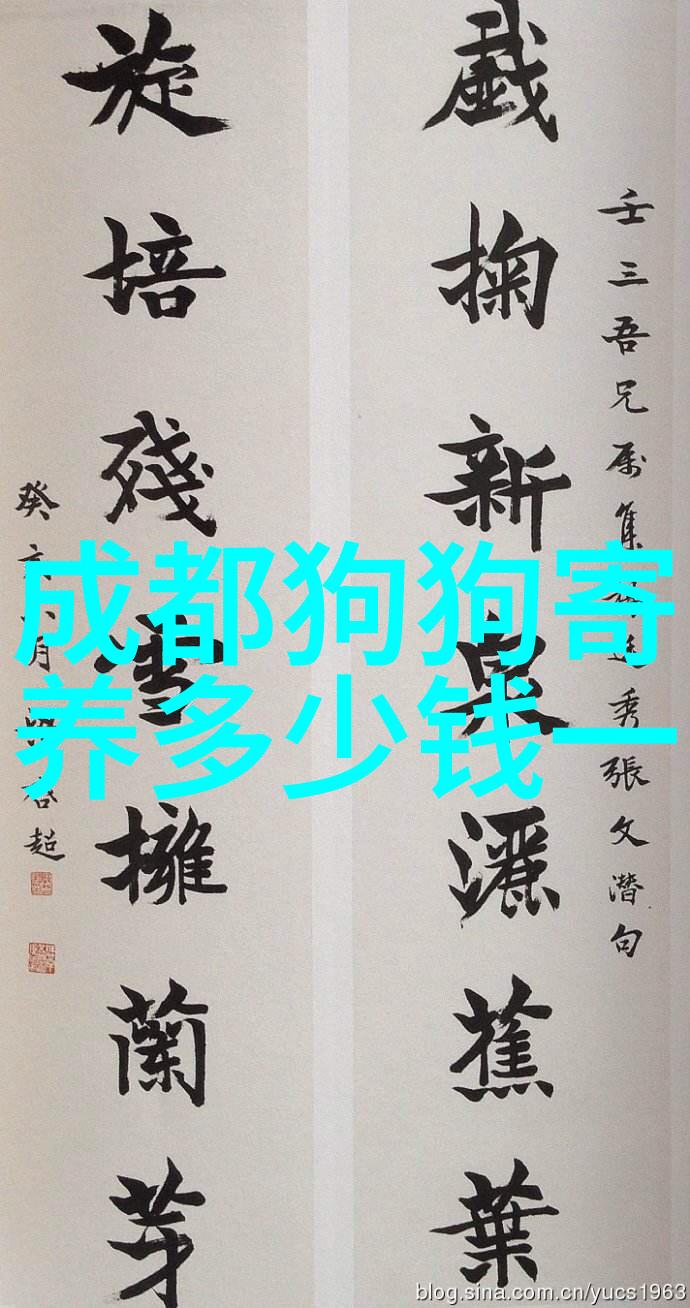 壬三吾兄属集秀張文潛句
戲掬新泉灑蕉葉
旋培殘雪擁蘭芽
癸亥月超
成都狗狗寄
养多少钱一
blog.sina.com.cn/yucs1963